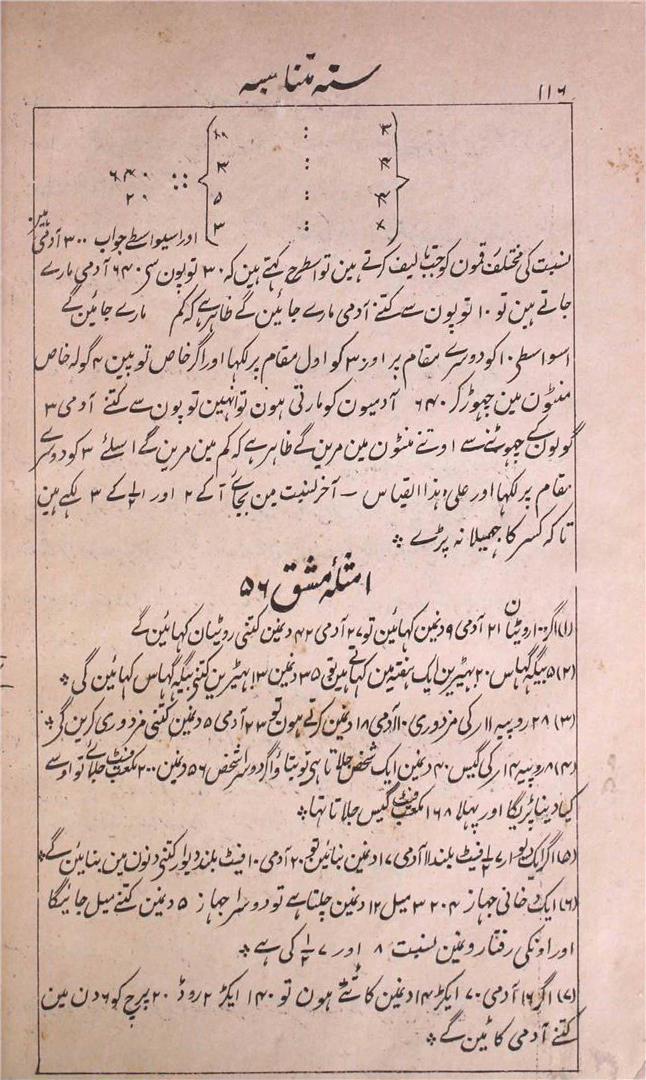 ۱۱۶ ستہ متناسبہ
۱۰ : ۳
۳ : ۴
۶۴۰ :: ۵ :
۲۰ ۳ :
اور اسیواسطے جواب ۳۰۰ آدمی ہین
نسبت کی مختلف قمون کو جب تالیف کرتے ہین تو اسطرح کہتے ہین کہ ۳۰ توپون سی ۶۴۰ آدمی مارے
جاتے ہین تو ۱۰ توپون سے کتنے آدمی مارے جائین گے ظاہر ہے کہ کم مارے جائین گے
اسواسطی ۱۰ کو دوسرے مقام پر اور ۳ کو اول مقام پر لکہا اور اگر خاص توپین ۴ گولہ خاص
منٹون مین چہوڑ کر ۶۴۰ آدمیون کو مارتی ہون تو انہین توپون سے کتنے آدمی ۳
گولون کے چہوٹنے سے اوتنے منٹون مین مرین گے ظاہر ہے کہ کم مین مرین گے اسلئے ۳ کو دوسرے
مقام پر لکہا اور علی ہذا القیاس – آخر نسبت مین بجائے ۱ کے ۲ اور ۱½ کے ۳ لکہے ہین
تا کہ کسر کا جھمیلا نہ پڑے ❖
امثلہ مشق ۵۶
(۱) اگر ۱۰ روٹیان ۲۱ آدمی ۹ دنمین کہائین تو ۲۷ آدمی ۴۲ دنمین کتنی روٹیان کہائین گے
(۲) ۵ بیگہ گہاس ۲۰ بہیڑین ایک ہفتہمین کہاتے ہین تو ۳۵ دنمین ۱۳ بہیڑین کتنی بیگہ گہاس کہائین گی ❖
(۳) ۲۸ روپیہ ۱۱ ر کی مزدوری ۱۰ آدمی ۱۸ دنمین کرتے ہون تو ۲۳ آدمی ۵ دنمین کتنی مزدوری کرین گے ❖
(۴) ۸ روپیہ ۱۴ ر کی گیس ۴۰ دنمین ایک شخص جلاتا ہی تو بتاؤ اگر دوسرا شخص ۵۶ دنمین ۲۰۰ مکعب فیٹ جلائے تو اوسے
کیا دینا پڑیگا اور پہلا ۱۶۸ مکعب فیٹ گیس جلاتا تہا ❖
(۵) اگر ایک دیوار ۷½ فیٹ بلند ۱۱ آدمی ۱۷ دنمین بنائین تو ۲۰ آدمی ۱۰ فیٹ بلند دیوار کتنی دنون مین بنائین گے ❖
(۶) ایک دخانی جہاز ۳۲۰۴ میل ۱۲ دنمین چلتا ہے تو دوسرا جہاز ۵ دنمین کتنے میل جائیگا
اور اونکی رفتارونمین نسبت ۸ اور ۷½ کی ہے ❖
(۷) اگر ۱۶ آدمی ۷۰ ایکڑ ۱۴ دنمین کاٹتے ہون تو ۱۴۰ ایکڑ ۲ روڈ ۲۰ پرچ کو ۶ دن مین
کتنے آدمی کاٹین گے ❖